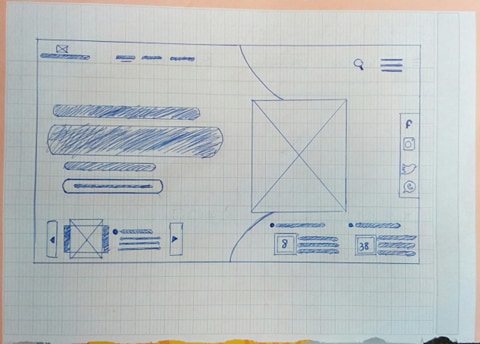 f
8
38